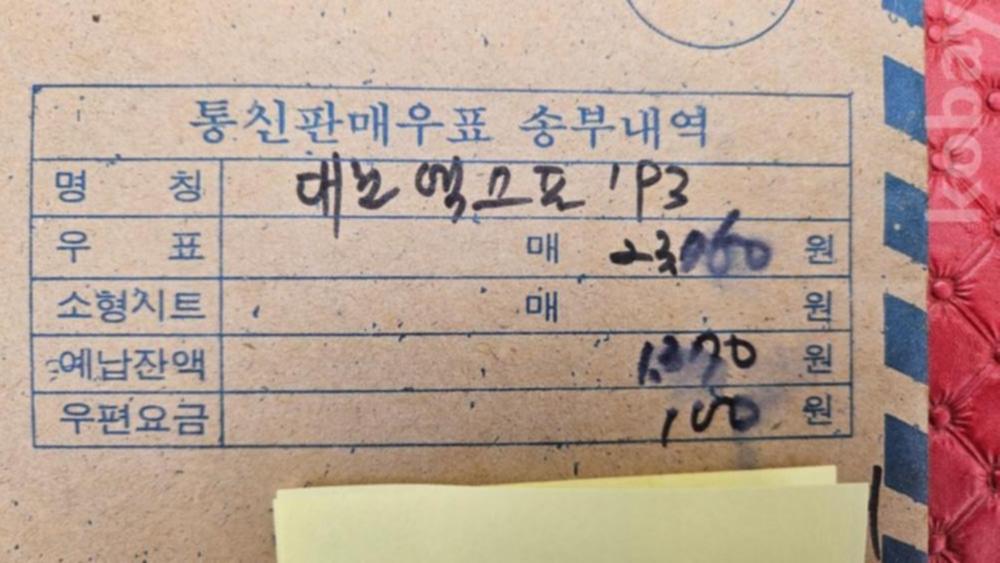 통신판매우표 송부내역
명 칭 대전 엑스포 '93
우 표 매 원
소형시트 매 원
예납잔액 원
우편요금 100 원
kobay